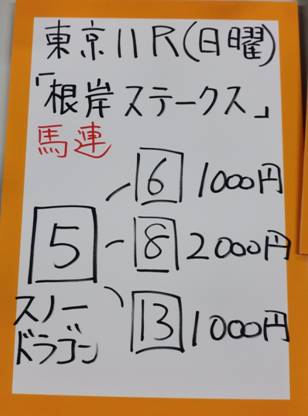 東京11R(日曜)
「根岸ステークス」
馬連
6 1000円
5 8 2000円
13 1000円
スノー
ドラゴン